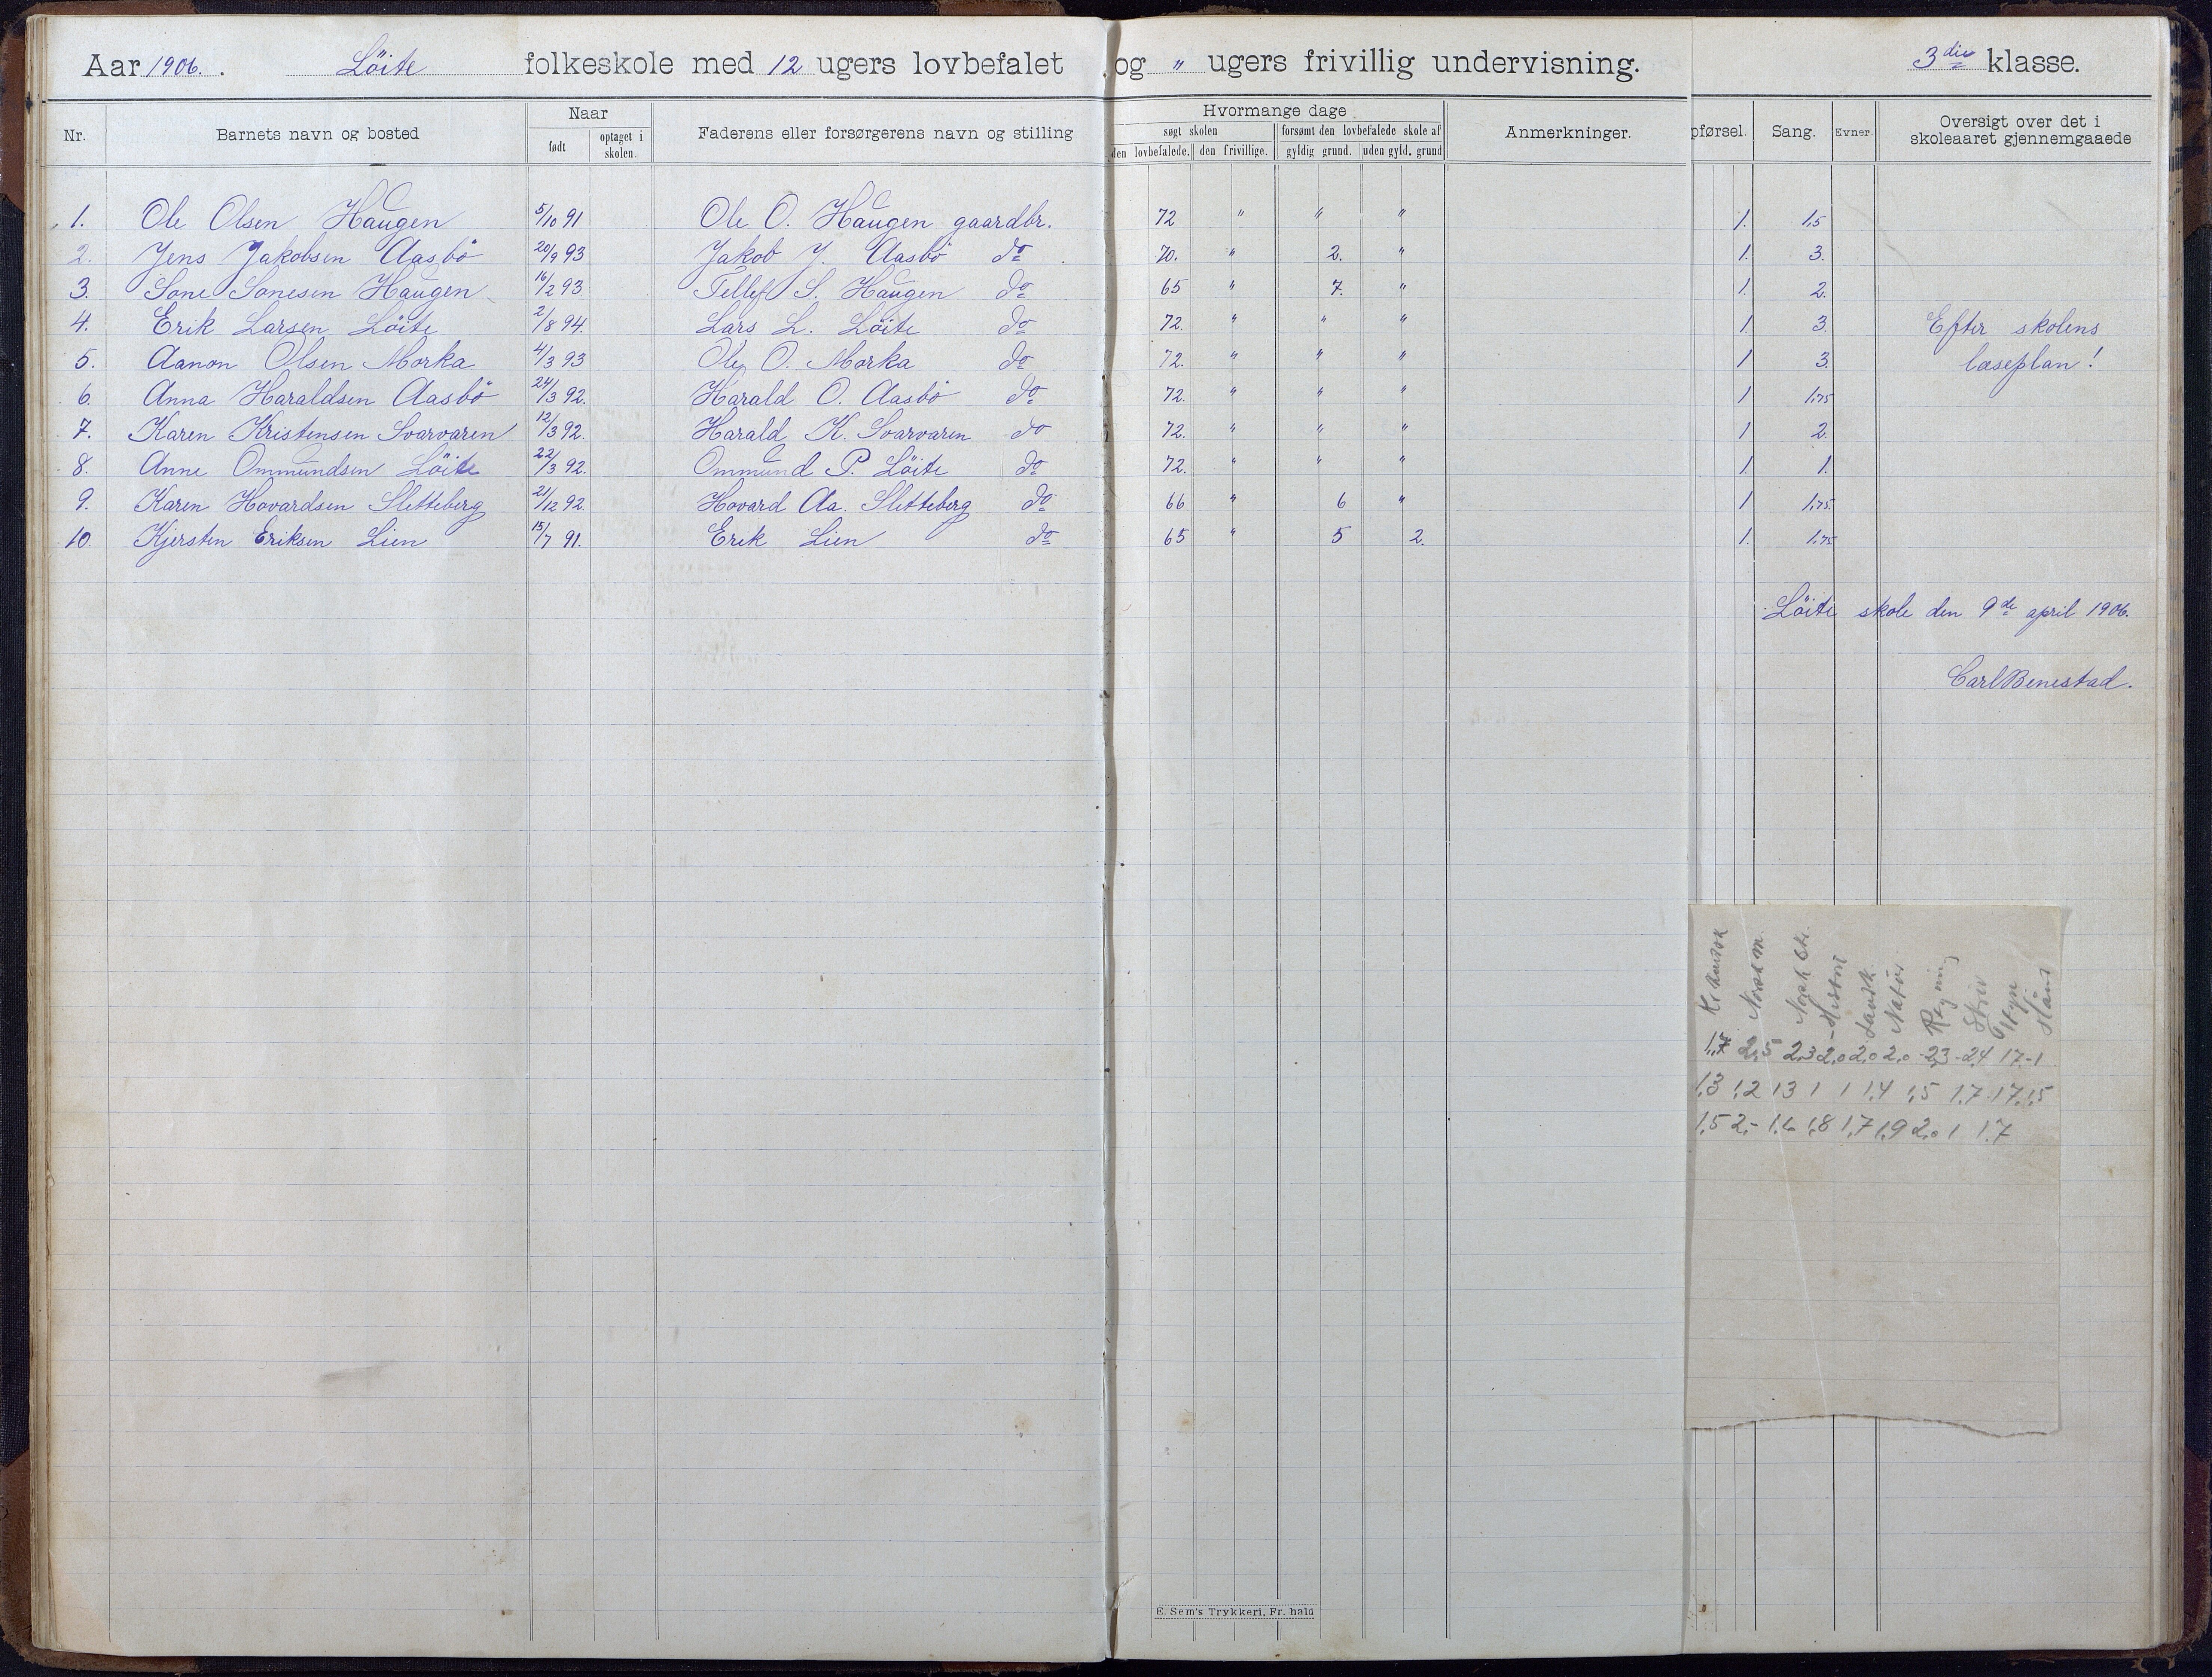 Aar 1906. Löite folkeskole med 12 ugers lovbefalet og " ugers frivillig undervisning. 3die klasse.
Nr. Barnets navn og bosted Naar født optaget i skolen. Faderens eller forsørgerens navn og stilling Hvormange dage søgt skolen den lovbefalede. den frivillige. forsømt den lovbefalede skole af gyldig grund. uden gyld. grund Anmerkninger. pførsel. Sang. Evner. Oversigt over det i skoleaaret gjennemgaaede
1. Ole Olsen Haugen 5/10 91 Ole O. Haugen gaardbr. 72 " " " 1. 1,5
2. Jens Jakobsen Aasbö 20/9 93 Jakob J. Aasbö do 70. " 2. " 1. 3.
3. Sone Sonesen Haugen 16/2 93 Tellef S. Haugen do 65 " 7. " 1. 2.
4. Erik Larsen Löite 2/8 94. Lars L. Löite do 72. " " " 1 3. Efter skolens
5. Aanon Olsen Morka 4/3 93 Ole O. Morka do 72. " " " 1 3. læseplan!
6. Anna Haraldsen Aasbö 24/3 92. Harald O. Aasbö do 72. " " " 1 1,75
7. Karen Kristensen Svarvaren 12/3 92. Harald K. Svarvaren do 72. " " " 1 2.
8. Anne Ommundsen Löite 22/3 92. Ommund P. Löite do 72. " " " 1. 1.
9. Karen Hovardsen Sletteberg 21/12 92. Hovard Aa. Sletteberg do 66 " 6 " 1 1,75.
10. Kjersten Eriksen Lien 15/7 91. Erek Lien do 65 " 5 2. 1. 1,75
Löite skole den 9de april 1906.
Carl Benestad.
Norsk m. Norsk Histori Landk. Natur Regning Skriv Hånd
1,7 2,5 2,3 2,0 2,0 2,0 - 23 - 24 17 - 1
1,3 1,2 13 1 1 1,4 1,5 1,7 - 17, 1,5
1,5 2,- 1,6 1,8 1,7 1,9 2,0 1 1,7
E. Sem's Trykkeri, Fr. hald